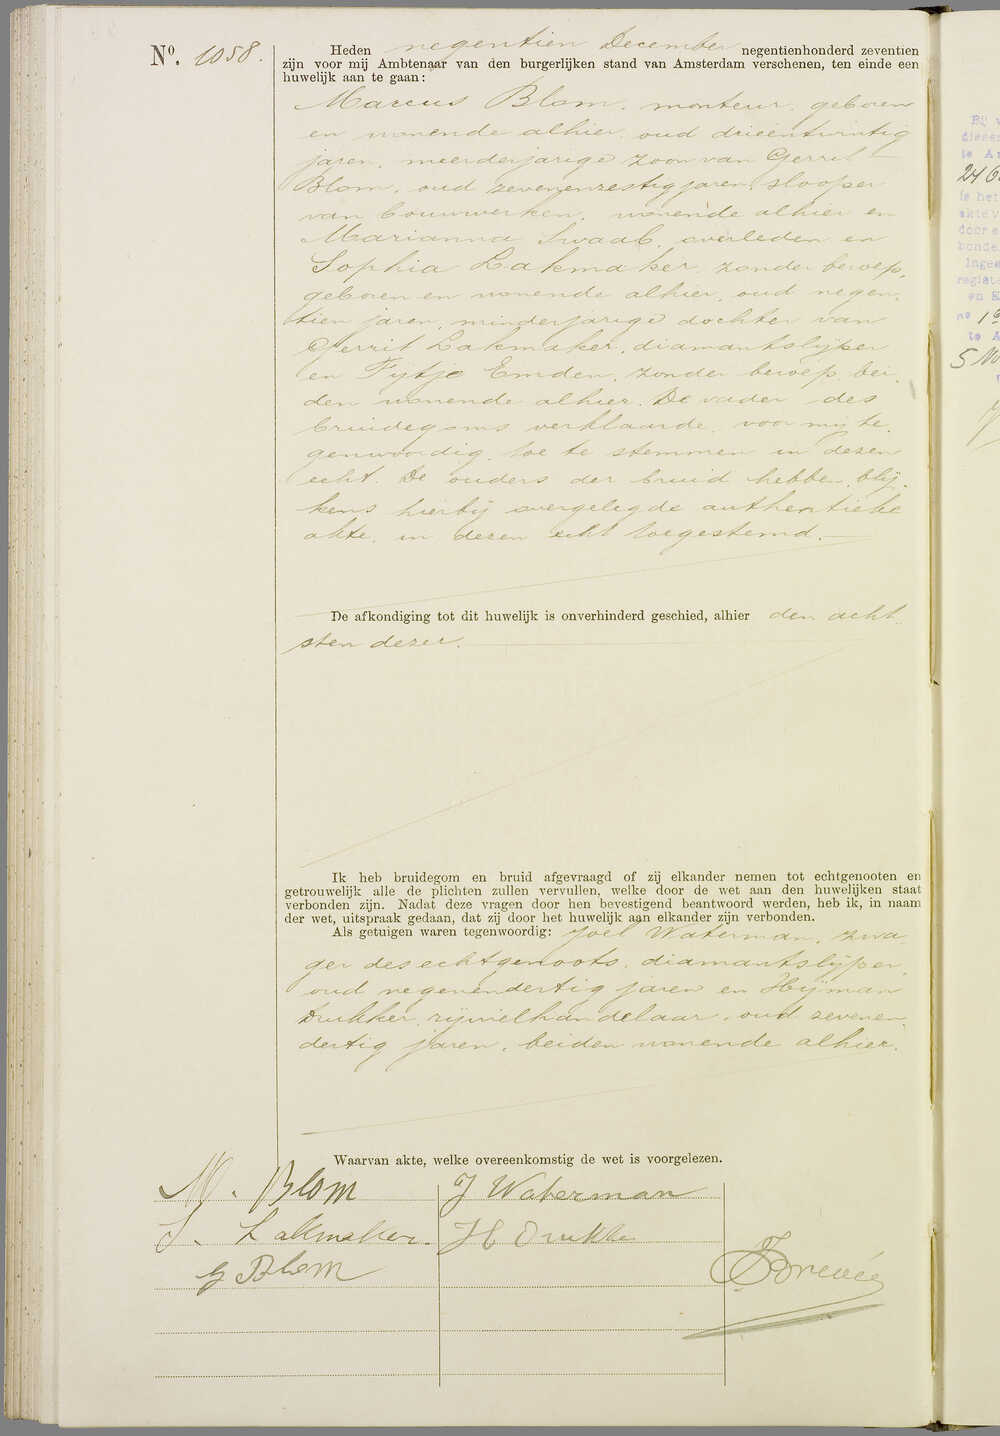 Nº. 1058.
Heden negentien December negentienhonderd zeventien
zijn voor mij Ambtenaar van den burgerlijken stand van Amsterdam verschenen, ten einde een
huwelijk aan te gaan:
Marcus Blom, monteur, geboren
en wonende alhier, oud drieëntwintig
jaren, meerderjarige zoon van Gerrit
Blom, oud zevenenzestig jaren, slooper
van bouwwerken, wonende alhier en
Marianna Swaab, overleden en
Sophia Lakmaker, zonder beroep,
geboren en wonende alhier, oud negen-
tien jaren, minderjarige dochter van
Gerrit Lakmaker, diamantslijper
en Fytje Emden, zonder beroep, bei-
den wonende alhier. De vader des
bruidegoms verklaarde, voor mij te-
genwoordig, toe te stemmen in dezen
echt. De ouders der bruid hebben, blij-
kens hierbij overgelegde authentieke
akte, in dezen echt toegestemd.
De afkondiging tot dit huwelijk is onverhinderd geschied, alhier den acht-
sten dezer.
Ik heb bruidegom en bruid afgevraagd of zij elkander nemen tot echtgenooten en
getrouwelijk alle de plichten zullen vervullen, welke door de wet aan den huwelijken staat
verbonden zijn. Nadat deze vragen door hen bevestigend beantwoord werden, heb ik, in naam
der wet, uitspraak gedaan, dat zij door het huwelijk aan elkander zijn verbonden.
Als getuigen waren tegenwoordig: Joël Waterman, zwa-
ger des echtgenoots, diamantslijper,
oud negenendertig jaren en Hijman
Drukker, rijwielhandelaar, oud zevenen-
dertig jaren, beiden wonende alhier.
Waarvan akte, welke overeenkomstig de wet is voorgelezen.
M. Blom
J Waterman
S. Lakmaker
H Drukker
G Blom